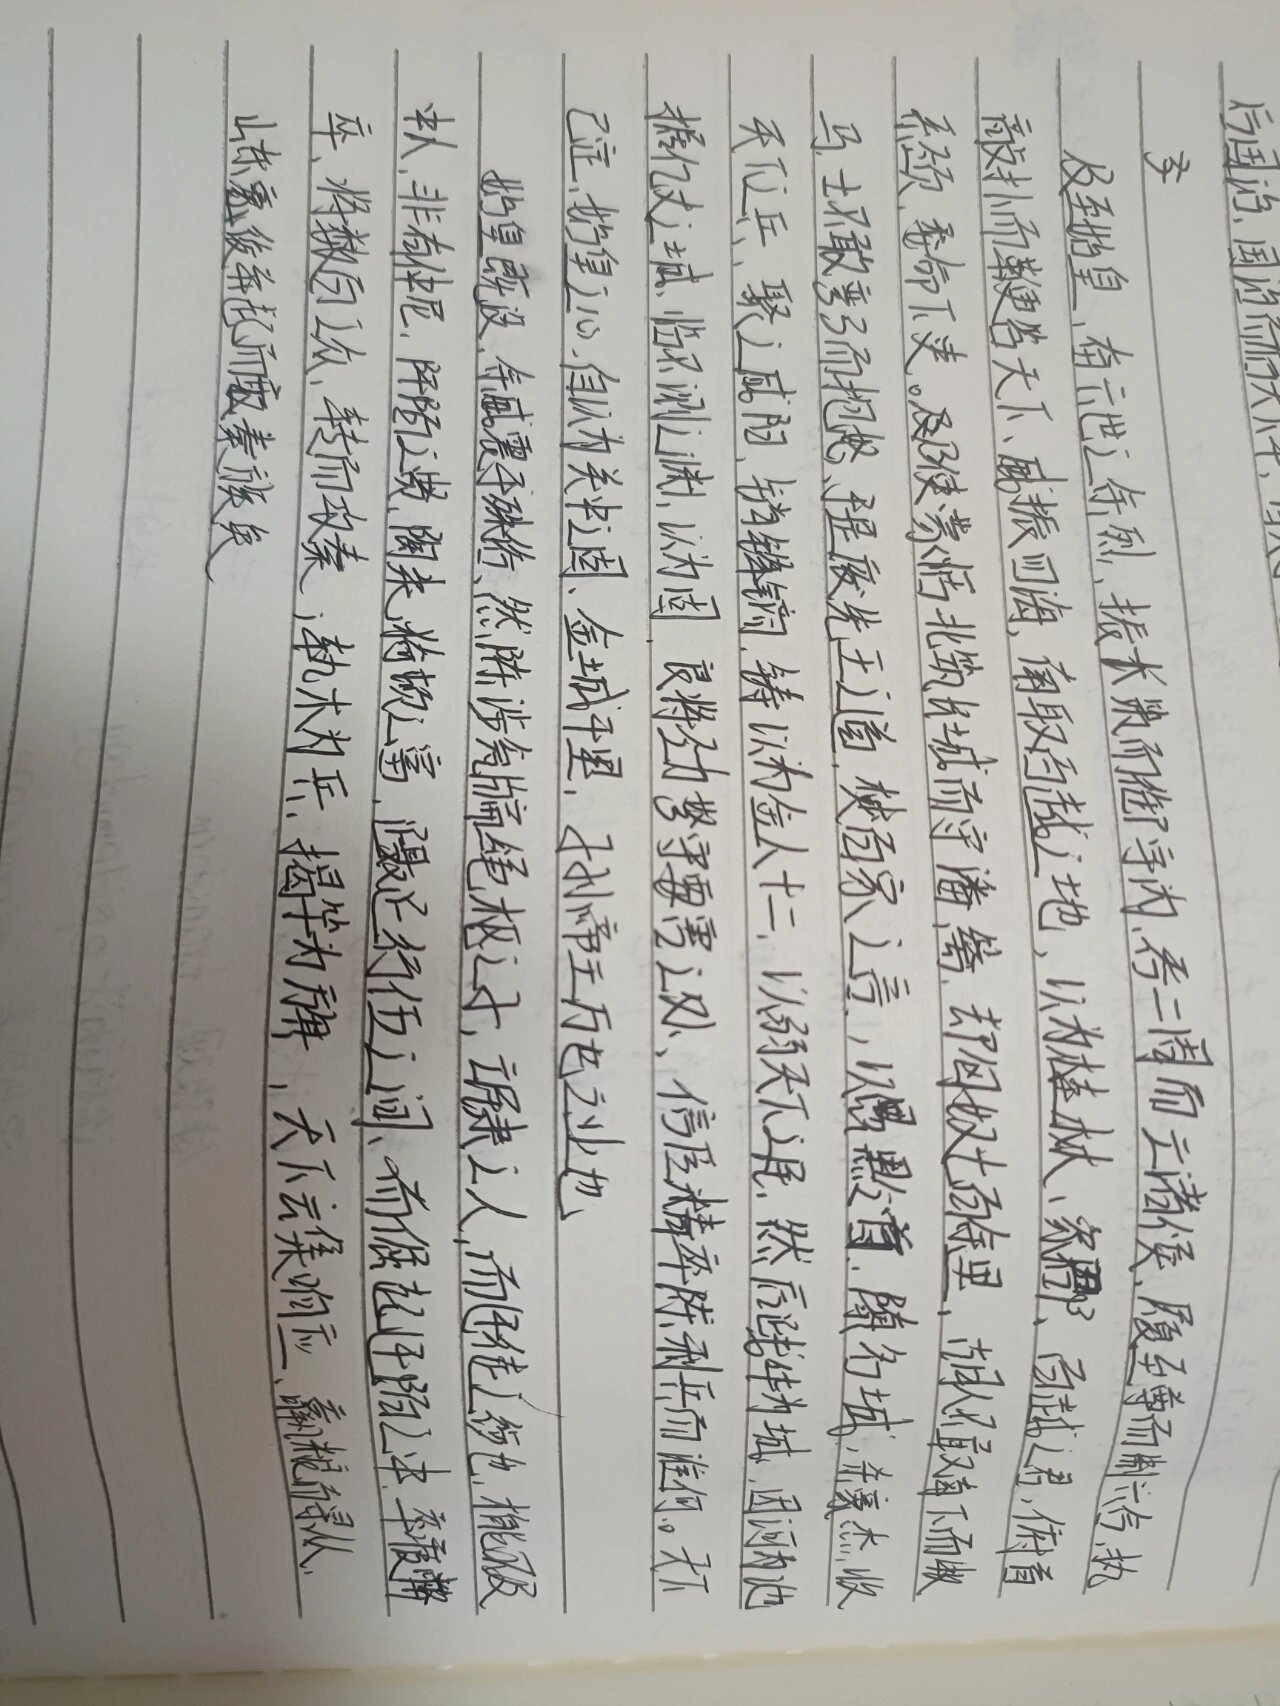 行国治、国治而
孝
及至始皇、奋六世之余烈、振长策而御宇内、吞二周而亡诸侯、履至尊而制六合、执
敲扑而鞭笞天下、威振四海、南取百越之地，以为桂林、象郡、百越之君，俯首
系颈，委命下吏。乃使蒙恬北筑长城而守藩篱，却匈奴七百余里，胡人不敢南下而牧
马，士不敢弯弓而抱怨、于是废先王之道，焚百家之言，以愚黔首，隳名城，杀豪杰，收
天下之兵、聚之咸阳，销锋镝，铸以为金人十二，以弱天下之民，然后践华为城，因河为池
据亿丈之城，临不测之渊，以为固，良将劲弩守要害之处、信臣精卒陈利兵而谁何。天下
已定，始皇之心、自以为关中之固、金城千里，子孙帝王万世之业也、
始皇既没，余威震于殊俗、然陈涉瓮牖绳枢之子，氓隶之人，而迁徙之徒也，材能不及
中人，非有仲尼，墨翟之贤，陶朱，猗顿之富，蹑足行伍之间、而倔起阡陌之中，率疲弊
卒，将数百之众，转而攻秦，斩木为兵，揭竿为旗，天下云集响应、赢粮而景从，
山东豪俊并起而亡秦族矣